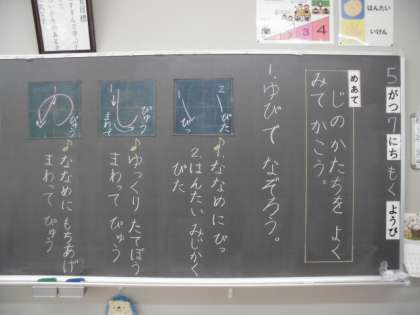 5がつ7にちもくようび
めあて
じのかたちを よく
みて かこう。
1.ゆびで なぞろう。
2 ぴた
1 ぴっ
♪1.ななめに ぴっ
2.はんたい みじかく
ぴた
し
まわって びゅう
♪ゆっくり たてぼう
まわって びゅう
の
びゅう
♪ななめに もちあげ
まわって びゅう
はんたい
いけん
3 4